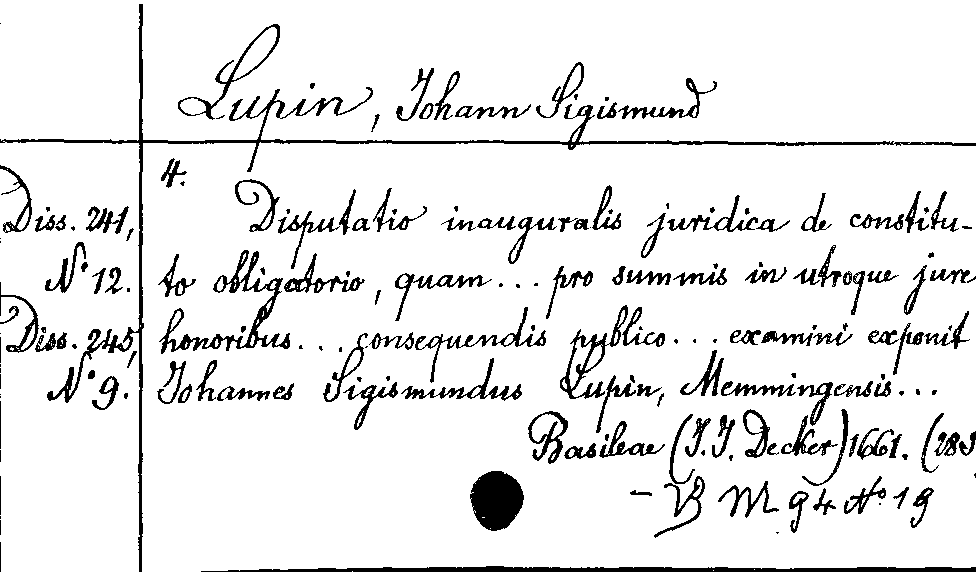 Lupin, Johann Sigismund
4.
Diss. 241, Disputatio inauguralis juridica de constitu-
N° 12. to obligatorio, quam... pro summis in utroque jure
Diss. 245, honoribus... consequendis publico... examini exponit
N° 9. Johannes Sigismundus Lupin, Memmingensis...
Basileae (J.J. Decker) 1661. (28 S
- VB M 94 N° 19